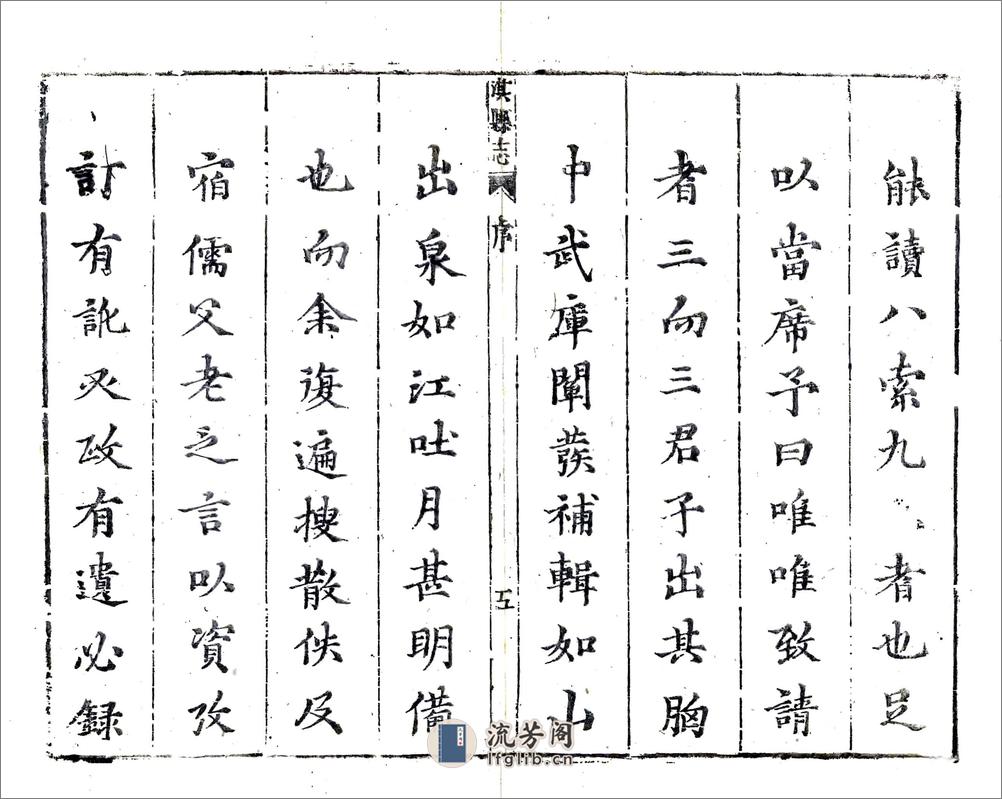 能讀八索九者也足
以當席予曰唯唯致請
者三而三君子出其胸
中武庫闡發補輯如山
出泉如江吐月甚明備
淇縣志 序 五
也而余復遍搜散佚及
宿儒父老之言以資攷
訂有訛必政有遺必録
流芳阁
lfglib.cn